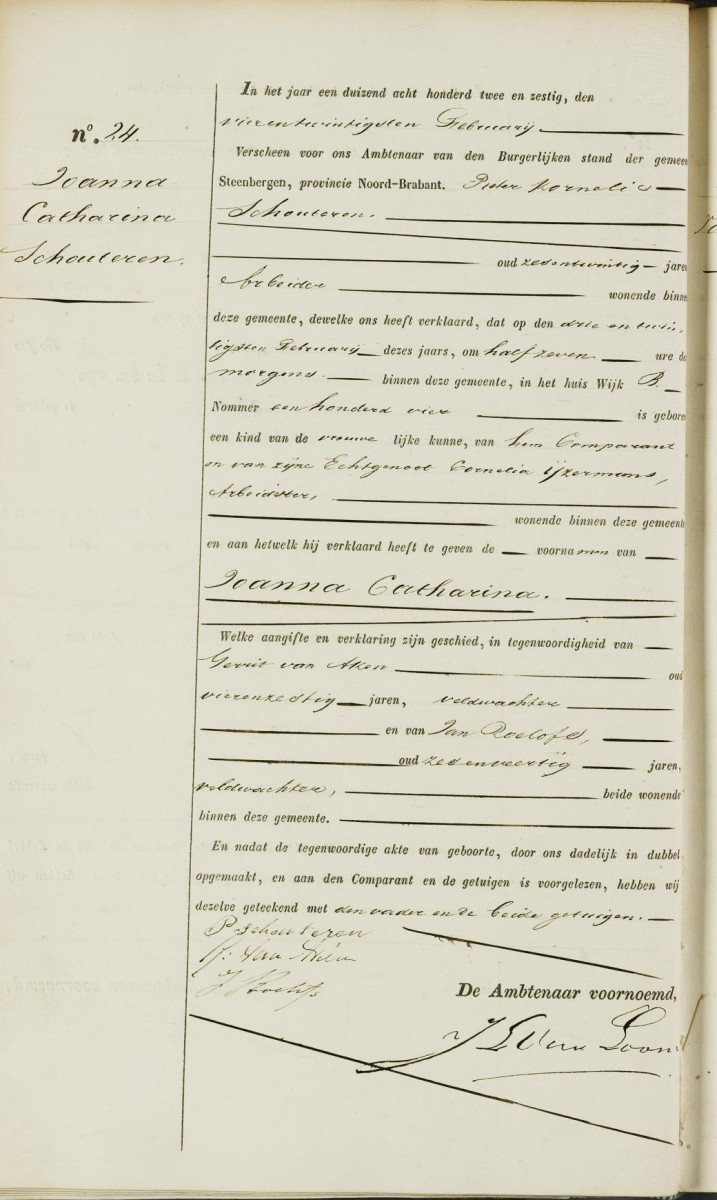 nº. 24.
Joanna
Catharina
Schouteren.
In het jaar een duizend acht honderd twee en zestig, den
vierentwintigsten Februarij
Verscheen voor ons Ambtenaar van den Burgerlijken stand der gemeen
Steenbergen, provincie Noord-Brabant. Pieter Kornelis
Schouteren.
oud zesentwintig jaren
Arbeider wonende binne
deze gemeente, dewelke ons heeft verklaard, dat op den drie en twin-
tigsten Februarij dezes jaars, om half zeven ure de
morgens binnen deze gemeente, in het huis Wijk B.
Nommer eenhonderd vier is gebore
een kind van de vrouwe lijke kunne, van hem Comparant
en van zijne Echtgenoot Cornelia Yzermans,
Arbeidster,
wonende binnen deze gemeente
en aan hetwelk hij verklaard heeft te geven de voornamen van
Joanna Catharina.
Welke aangifte en verklaring zijn geschied, in tegenwoordigheid van
Gerrit van Aken oud
vierenzestig jaren, veldwachter
en van Jan Roelofs,
oud zesenveertig jaren,
veldwachter, beide wonende
binnen deze gemeente.
En nadat de tegenwoordige akte van geboorte, door ons dadelijk in dubbel
opgemaakt, en aan den Comparant en de getuigen is voorgelezen, hebben wij
dezelve geteekend met den vader en de beide getuigen.
P schouteren
G: van Aken
J Roelofs
De Ambtenaar voornoemd,
van Loon